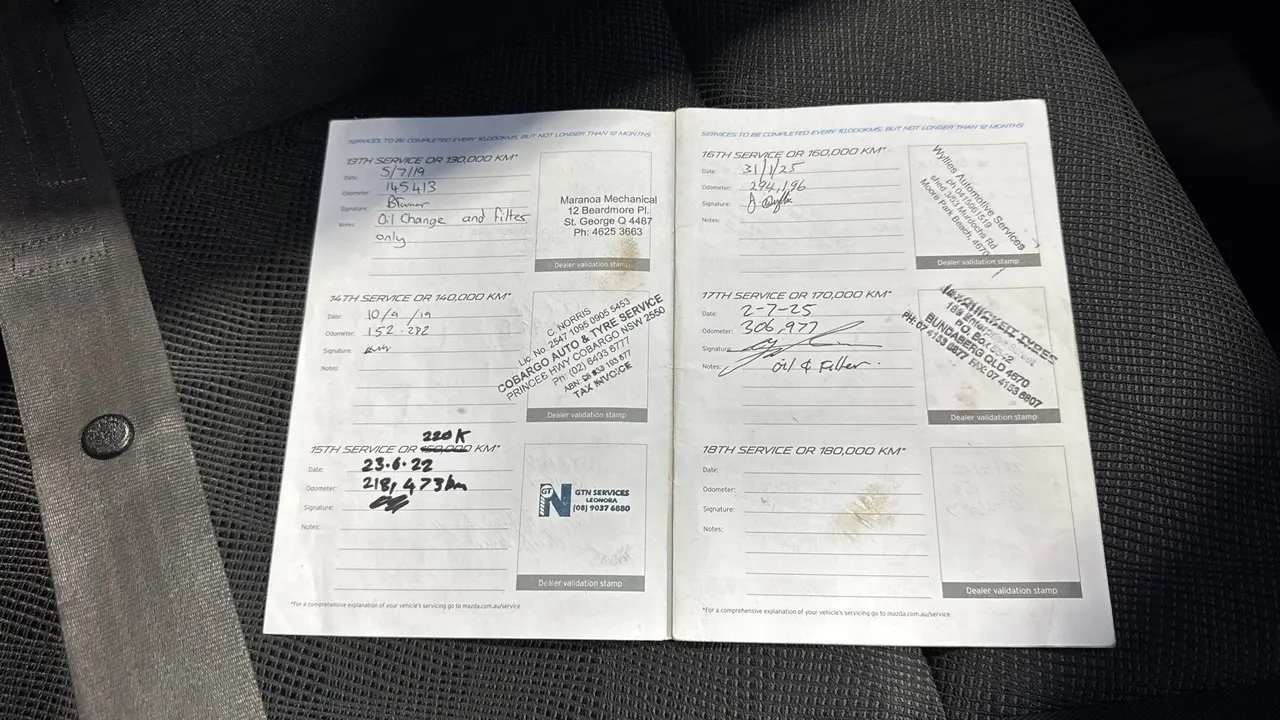 SERVICES TO BE COMPLETED EVERY 10,000KMS, BUT NOT LONGER THAN 12 MONTHS
13TH SERVICE OR 130,000 KM*
Date: 5/7/19
Odometer: 145413
Signature:
Notes: Oil Change and filter
only
Maranoa Mechanical
12 Beardmore Pl.
St. George Q 4487
Ph: 4625 3663
Dealer validation stamp
14TH SERVICE OR 140,000 KM*
Date: 10/9/19
Odometer: 152.232
Signature:
Notes:
C. NORRIS
Lic No. 2547 1095 0905 5453
COBARGO AUTO & TYRE SERVICE
PRINCES HWY COBARGO NSW 2550
Ph: (02) 6493 6777
TAX INVOICE
Dealer validation stamp
220K
15TH SERVICE OR 150,000 KM*
Date: 23.6.22
Odometer: 218,473km
Signature:
Notes:
GTN SERVICES
LEONORA
(08) 9037 6880
Dealer validation stamp
*For a comprehensive explanation of your vehicle's servicing go to mazda.com.au/service
SERVICES TO BE COMPLETED EVERY 10,000KMS, BUT NOT LONGER THAN 12 MONTHS
16TH SERVICE OR 160,000 KM*
Date: 31/1/25
Odometer: 294,196
Signature:
Notes:
Wyllies Automotive Services
ph 0415901519
shed 3/93 Murdochs Rd
Moore Park Beach, 4670
Dealer validation stamp
17TH SERVICE OR 170,000 KM*
Date: 2-7-25
Odometer: 306,977
Signature:
Notes: Oil & Filter.
TYRES
BUNDABERG QLD 4670
PH: 07 4153 8877 FAX: 07 4153 8807
Dealer validation stamp
18TH SERVICE OR 180,000 KM*
Date:
Odometer:
Signature:
Notes:
Dealer validation stamp
*For a comprehensive explanation of your vehicle's servicing go to mazda.com.au/service